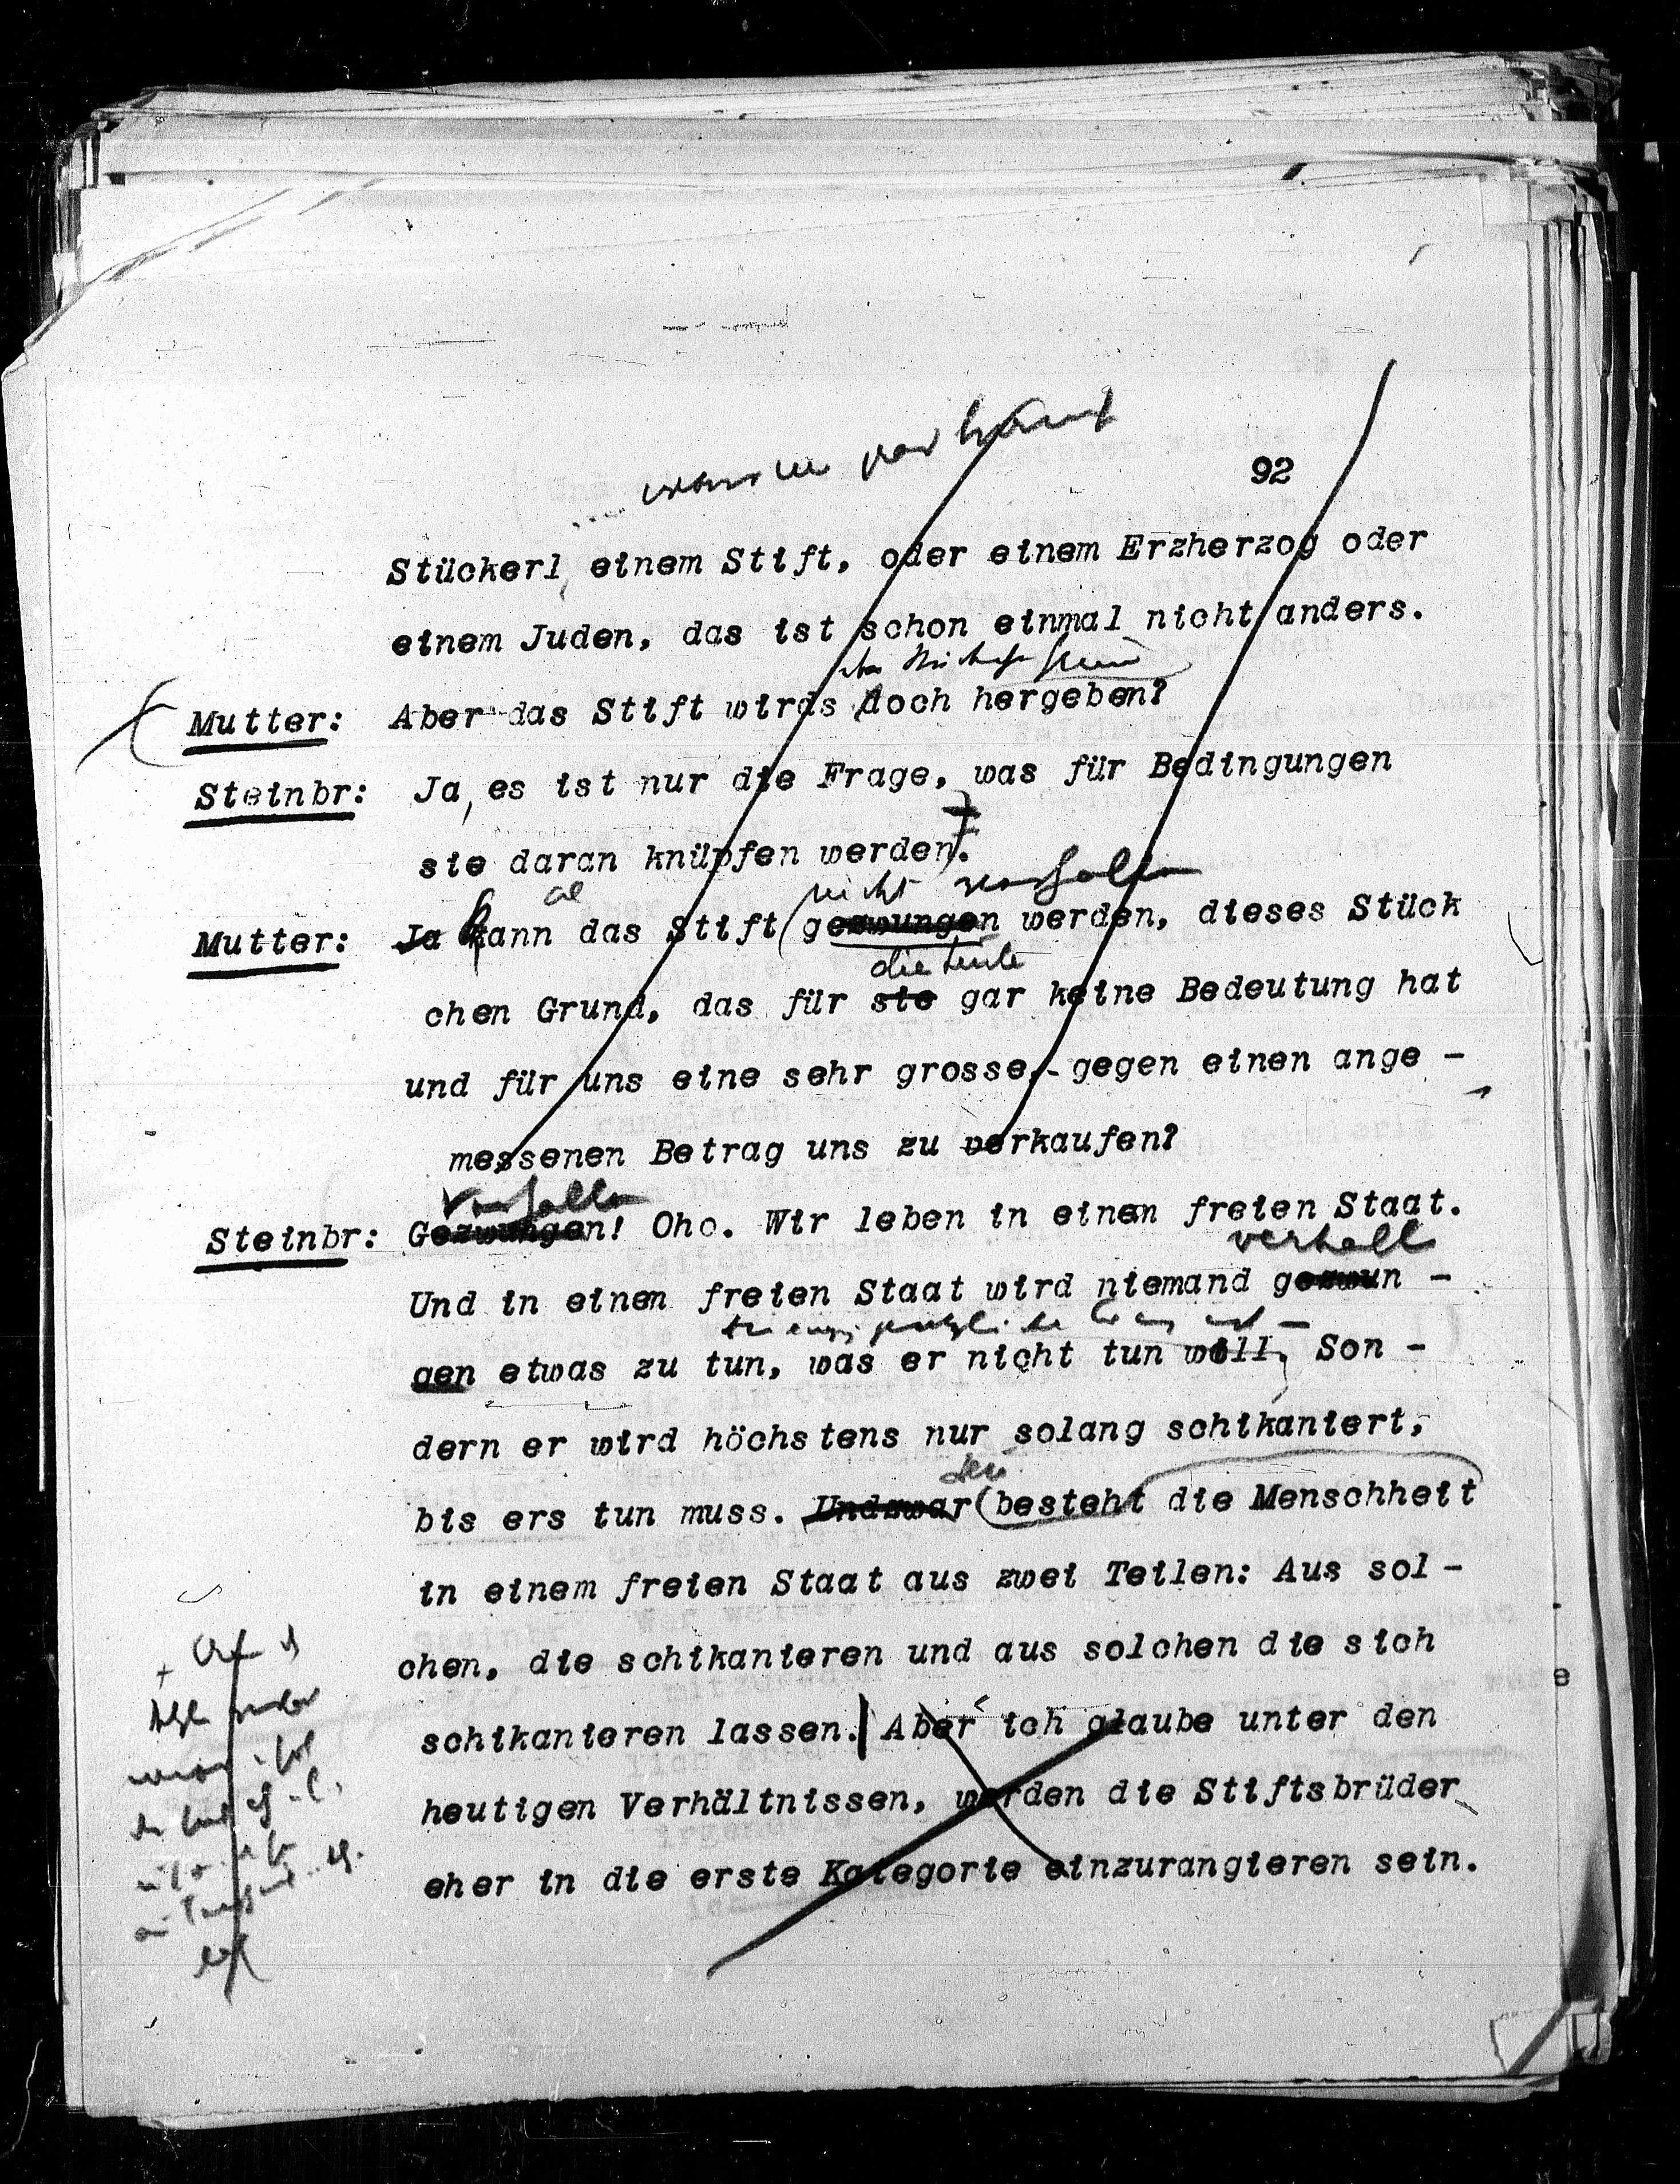 92
Stückerl, einem Stift, oder einem Erzherzog oder
einem Juden, das ist schon einmal nicht anders.
Mutter: Aber das Stift wirds doch hergeben?
Steinbr: Ja, es ist nur die Frage, was für Bedingungen
sie daran knüpfen werden.
nicht verhalten
Mutter: Ja kann das Stift gezwungen werden, dieses Stück
die Leute
chen Grund, das für sie gar keine Bedeutung hat
und für uns eine sehr grosse, gegen einen ange -
messenen Betrag uns zu verkaufen?
Verhalten
Steinbr: Gezwungen! Oho. Wir leben in einem freien Staat.
verhalt
Und in einem freien Staat wird niemand gezwun -
gen etwas zu tun, was er nicht tun will, Son -
dern er wird höchstens nur solang schikaniert,
bis ers tun muss. Undzwar besteht die Menschheit
in einem freien Staat aus zwei Teilen: Aus sol -
chen, die schikanieren und aus solchen die sich
schikanieren lassen. Aber ich glaube unter den
heutigen Verhältnissen, werden die Stiftsbrüder
eher in die erste Kategorie einzurangieren sein.